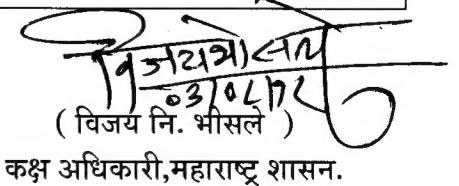 विजय भोसले
( विजय नि. भोसले )
कक्ष अधिकारी,महाराष्ट्र शासन.